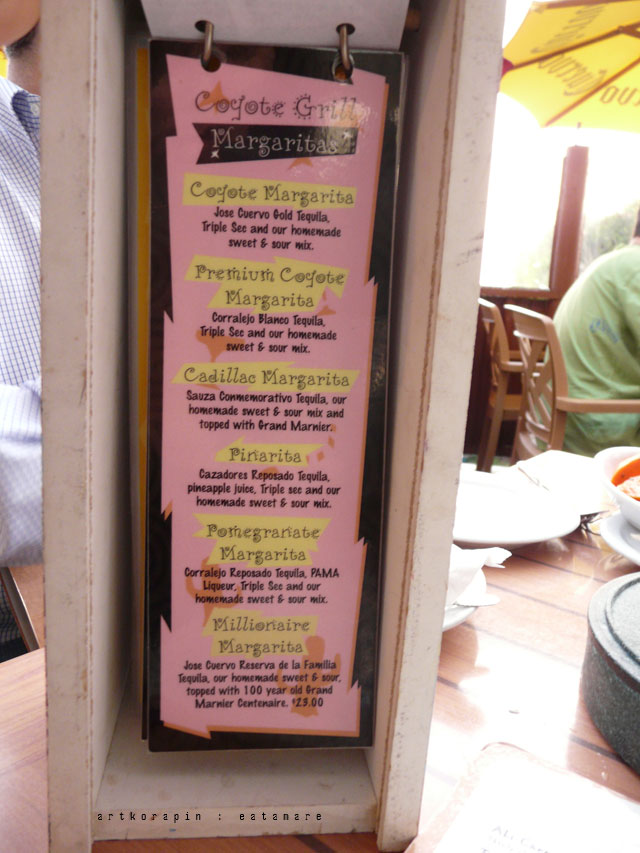 Coyote Grill
Margaritas
Coyote Margarita
Jose Cuervo Gold Tequila,
Triple Sec and our homemade
sweet & sour mix.
Premium Coyote
Margarita
Corralejo Blanco Tequila,
Triple Sec and our homemade
sweet & sour mix.
Cadillac Margarita
Sauza Conmemorativo Tequila, our
homemade sweet & sour mix and
topped with Grand Marnier.
Pinarita
Cazadores Reposado Tequila,
pineapple juice, Triple sec and our
homemade sweet & sour mix.
Pomegranate
Margarita
Corralejo Reposado Tequila, PAMA
Liqueur, Triple Sec and our
homemade sweet & sour mix.
Millionaire
Margarita
Jose Cuervo Reserva de la Familia
Tequila, our homemade sweet & sour,
topped with 100 year old Grand
Marnier Centenaire. $23.00
artkorapin : eatamare